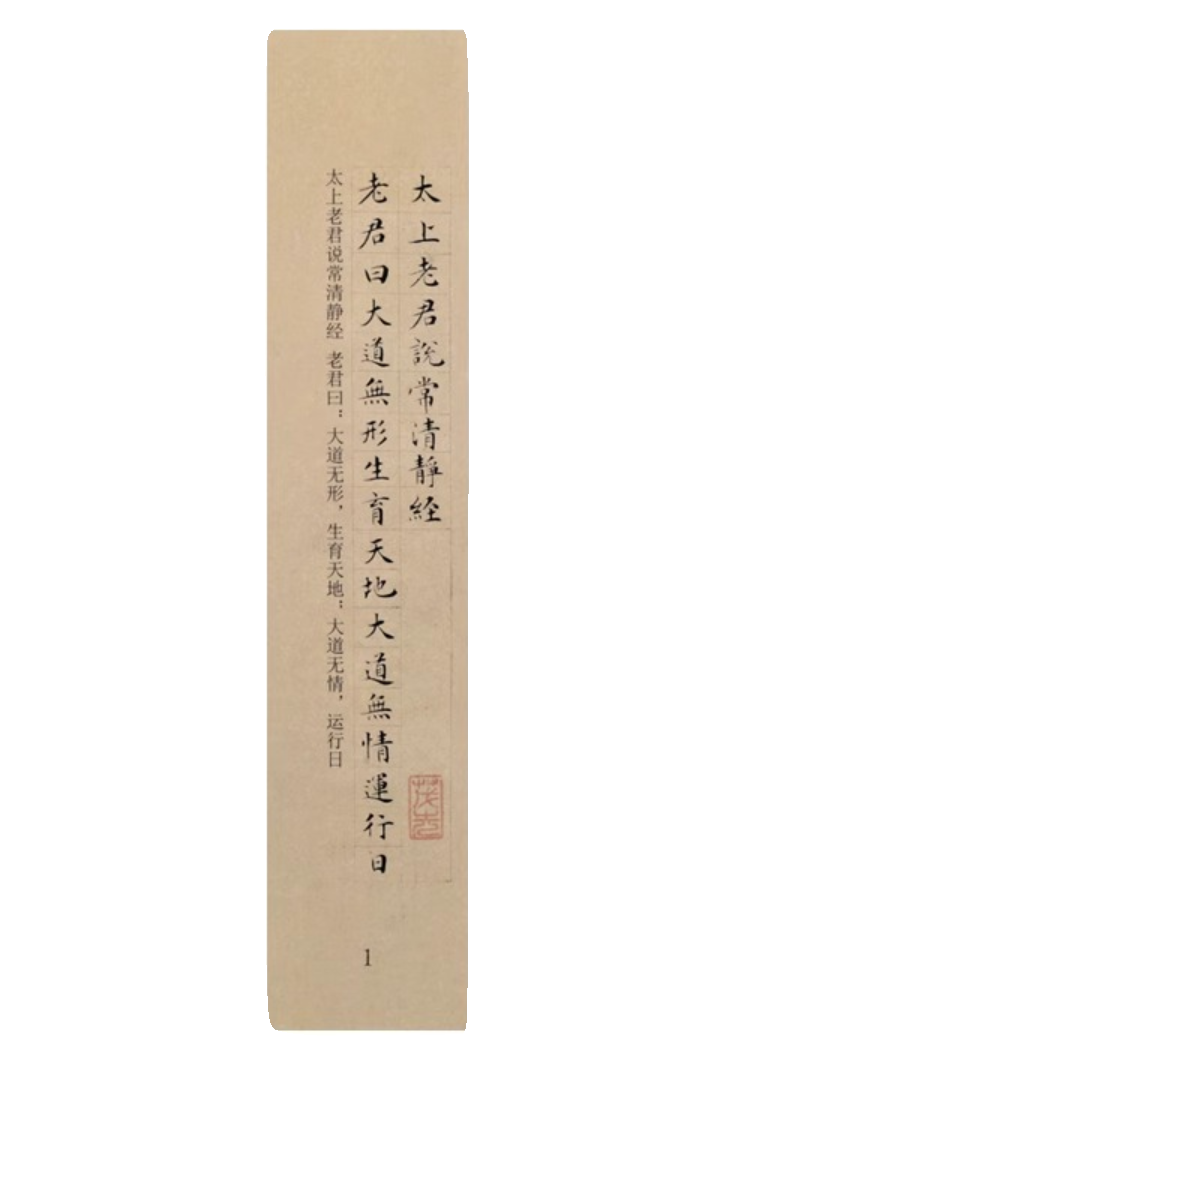 太上老君說常清靜經
老君曰大道無形生育天地大道無情運行日
太上老君说常清静经 老君曰：大道无形，生育天地；大道无情，运行日
1